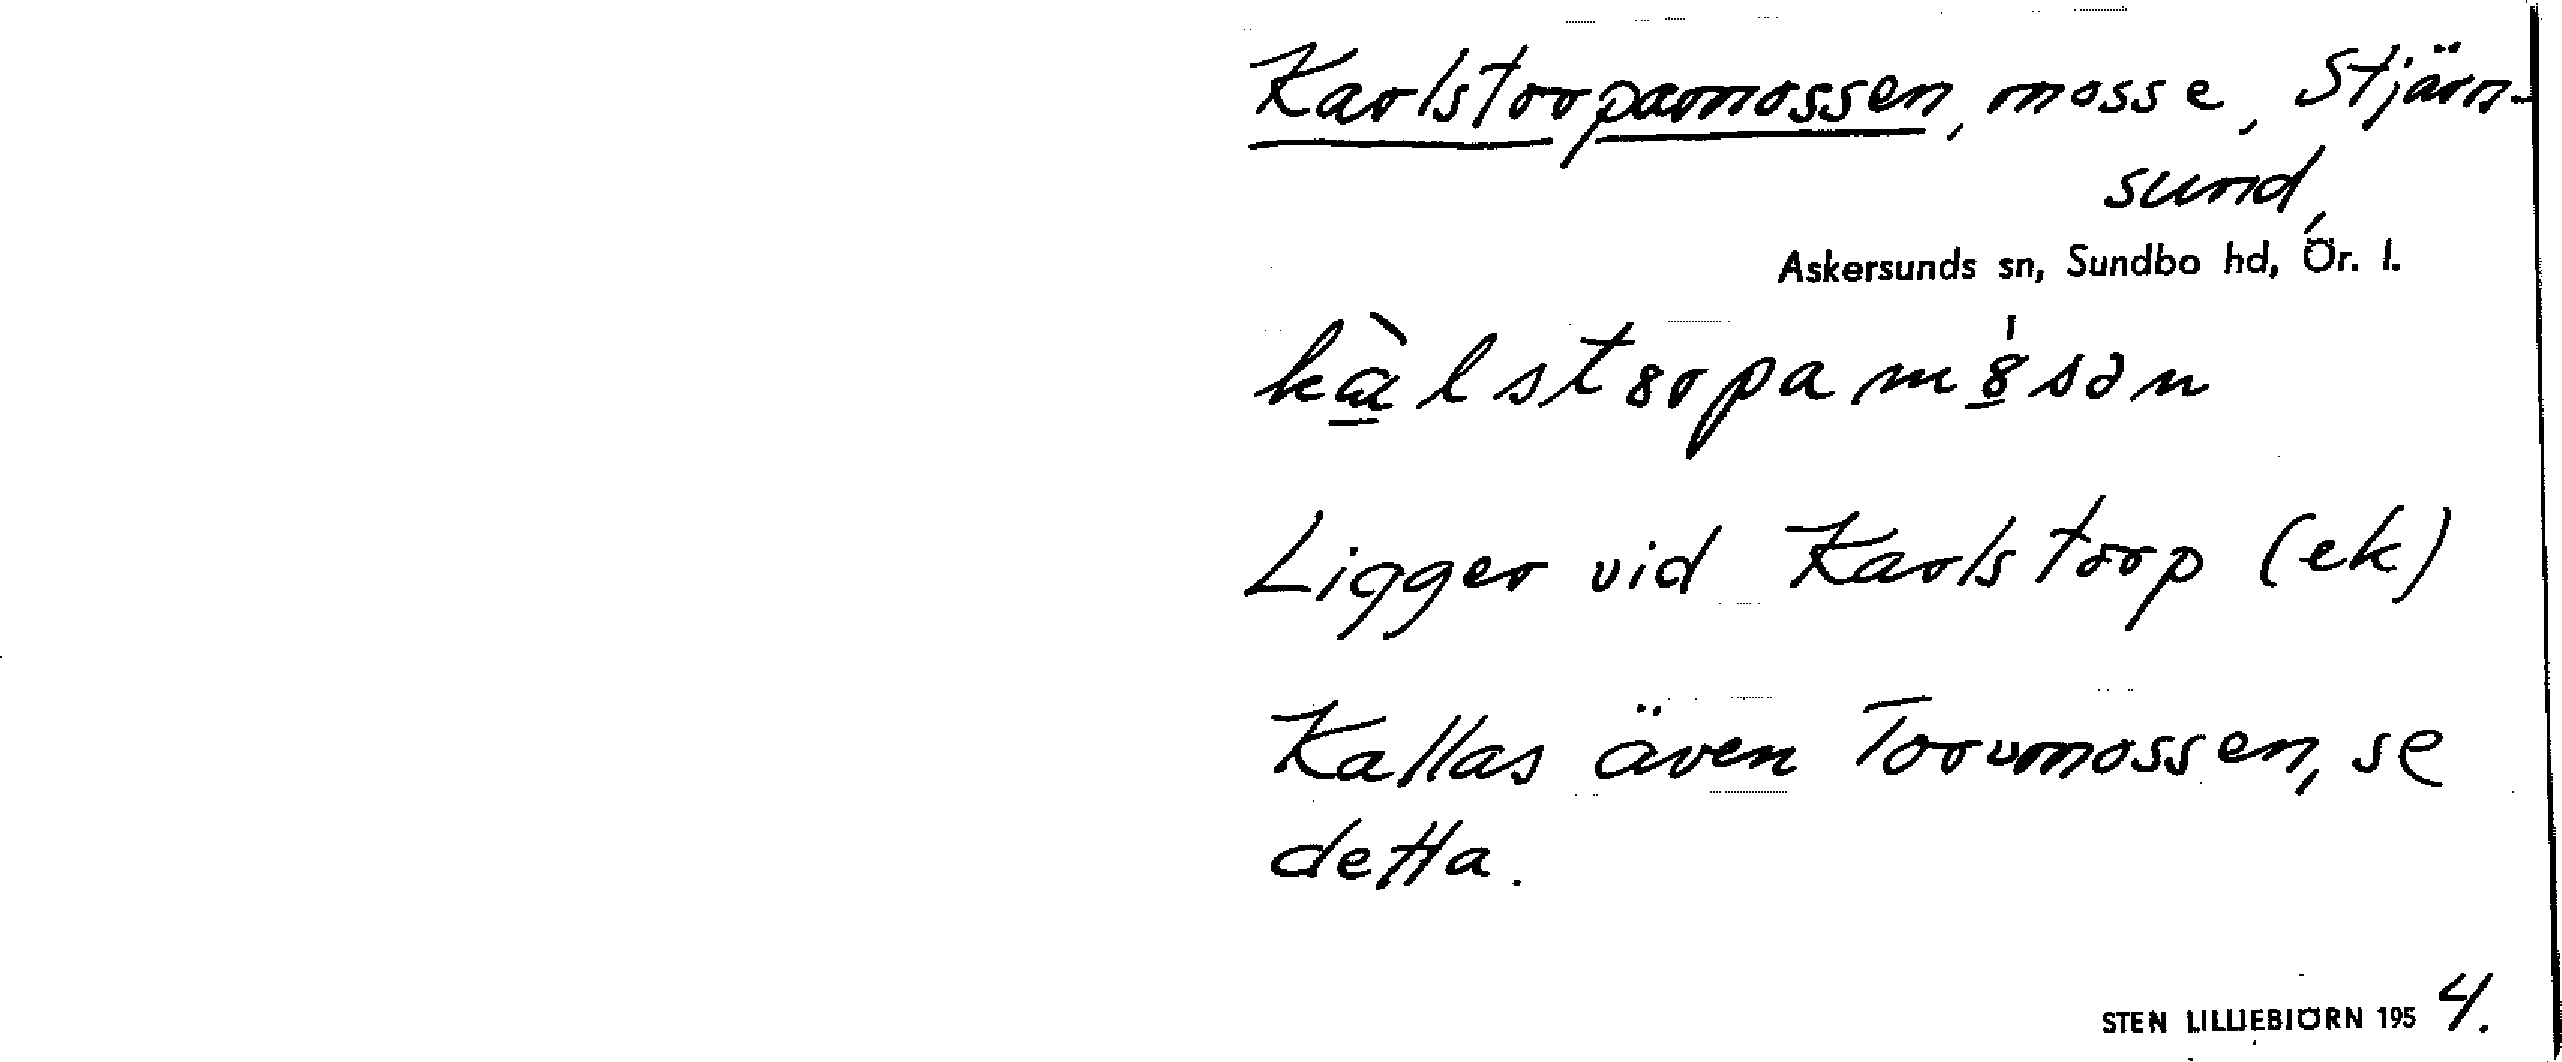 Karlstorpamossen, mosse, Stjärn-
sund,
Askersunds sn, Sundbo hd, Ör. l.
Ligger vid Karlstorp (ek)
Kallas även Torvmossen, se
detta.
STEN LILLIEBIÖRN 1954.